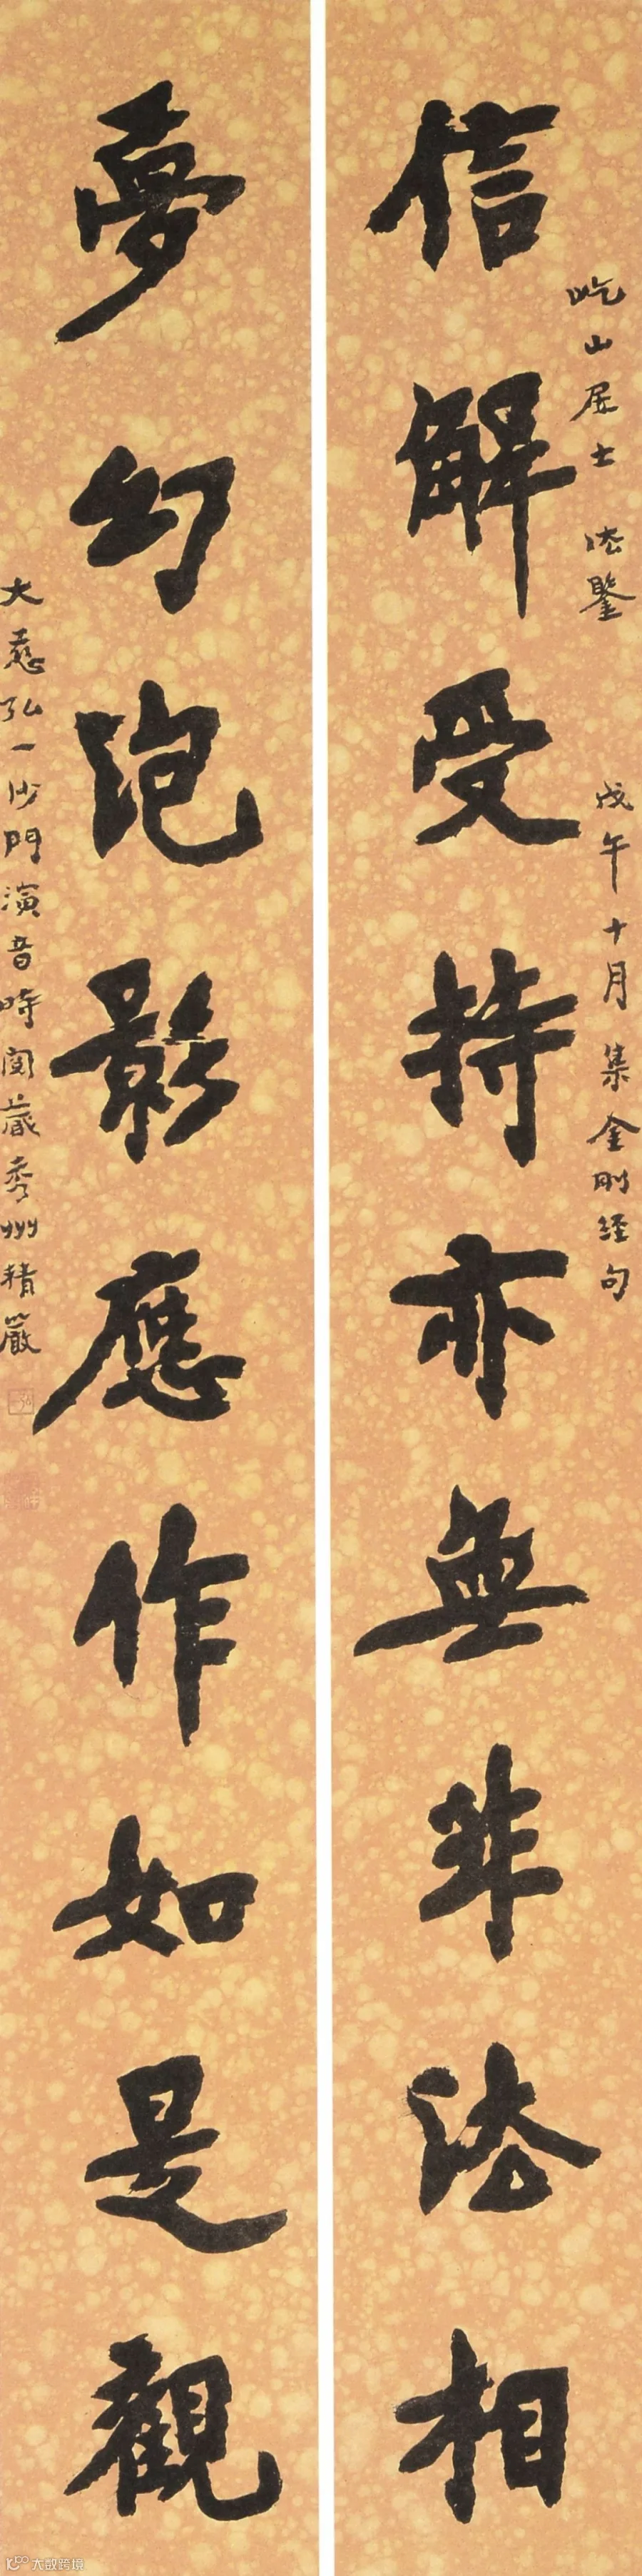 屹山居士 法鑒
戊午十月集金剛經句
信解受持亦無非法相
夢幻泡影應作如是觀
大慈弘一沙門演音時閱藏秀州精嚴
大数跨境